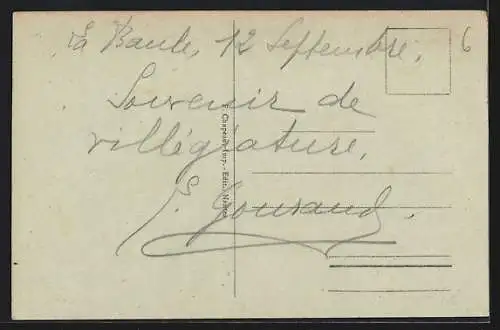 La Baule, 12 Septembre.
6
Souvenir de
villégiature.
Gouraud.
F. Chapeau, Imp.-Edit., Nantes